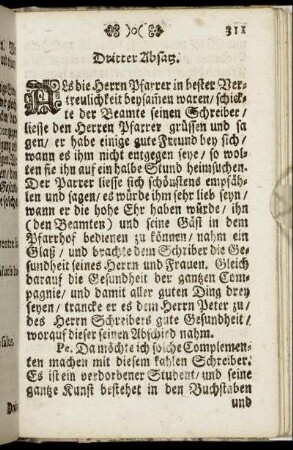 )o( 311
Dritter Absatz.
ALs die Herrn Pfarrer in bester Ver-
treulichkeit beysamen waren/ schick-
te der Beamte seinen Schreiber/
liesse den Herren Pfarrer grüssen und sa-
gen/ er habe einige gute Freund bey sich/
wann es ihm nicht entgegen seye/ so wol-
len sie ihn auf ein halbe Stund heimsuchen.
Der Parrer liesse sich schönstens empfäh-
len und sagen/ es würde ihm sehr lieb seyn/
wann er die hohe Ehr haben würde/ ihn
(den Beamten) und seine Gäst in dem
Pfarrhof bedienen zu können/ nahm ein
Glaß/ und brachte dem Schriber die Ge-
sundheit seines Herrn und Frauen. Gleich
darauf die Gesundheit der gantzen Com-
pagnie/ und damit aller guten Ding drey
seyen/ trancke er es dem Herrn Peter zu/
des Herrn Schreibers gute Gesundheit/
worauf dieser seinen Abschied nahm.
Pe. Da möchte ich solche Complemen-
ten machen mit diesem kahlen Schreiber.
Es ist ein verdorbener Student/ und seine
gantze Kunst bestehet in den Buchstaben
und